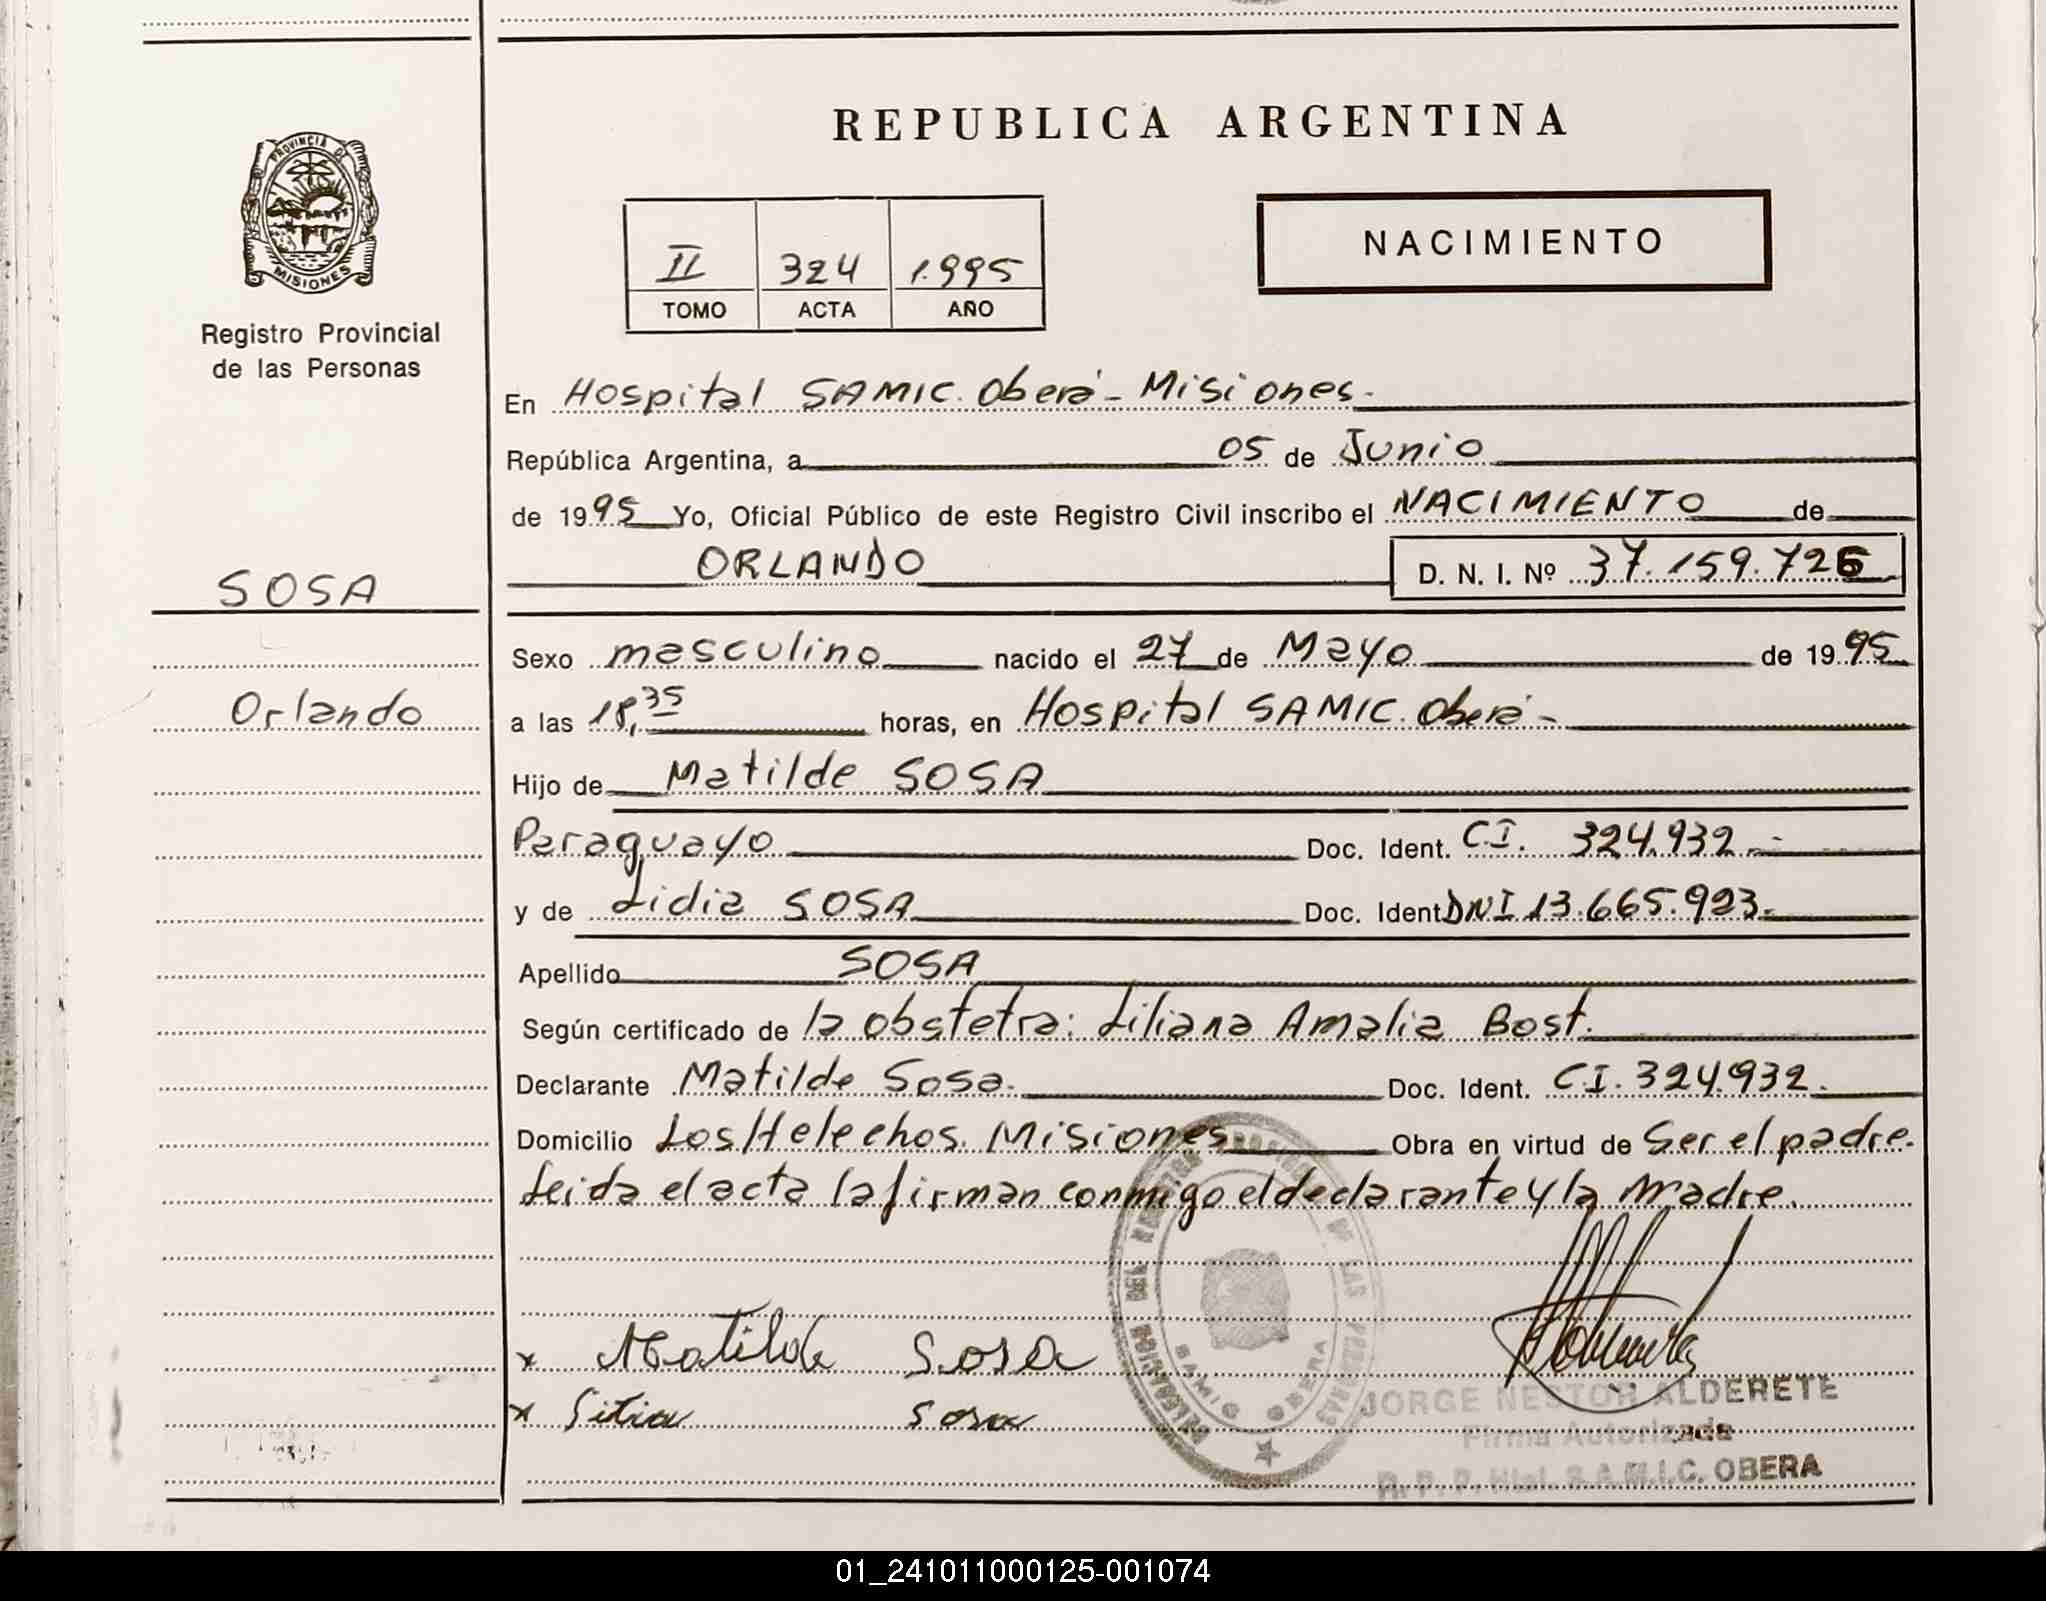 REPUBLICA ARGENTINA
PROVINCIA DE
MISIONES
Registro Provincial
de las Personas
SOSA
Orlando
II 324 1.995
TOMO ACTA AÑO
NACIMIENTO
En Hospital SAMIC. Oberá - Misiones.
República Argentina, a 05 de Junio
de 1995 Yo, Oficial Público de este Registro Civil inscribo el NACIMIENTO de
ORLANDO D. N. I. Nº 37.159.726
Sexo masculino nacido el 27 de Mayo de 1995
a las 18,35 horas, en Hospital SAMIC. Oberá -
Hijo de Matilde SOSA
Paraguayo Doc. Ident. C.I. 324.932.-
y de Lidia SOSA Doc. Ident. DNI 13.665.923.
Apellido SOSA
Según certificado de la obstetra: Liliana Amalia Bost.
Declarante Matilde Sosa. Doc. Ident. C.I. 324.932.
Domicilio Los Helechos. Misiones Obra en virtud de Ser el padre.
Leida el acta la firman conmigo el declarante y la Madre.
x Matilde Sosa
x Sosa
DELEGACION DEL REGISTRO PROVINCIAL DE LAS PERSONAS
SAMIC OBERA
JORGE NESTOR ALDERETE
Firma Autorizada
R. P. P. Htal. S.A.M.I.C. OBERA
01_241011000125-001074